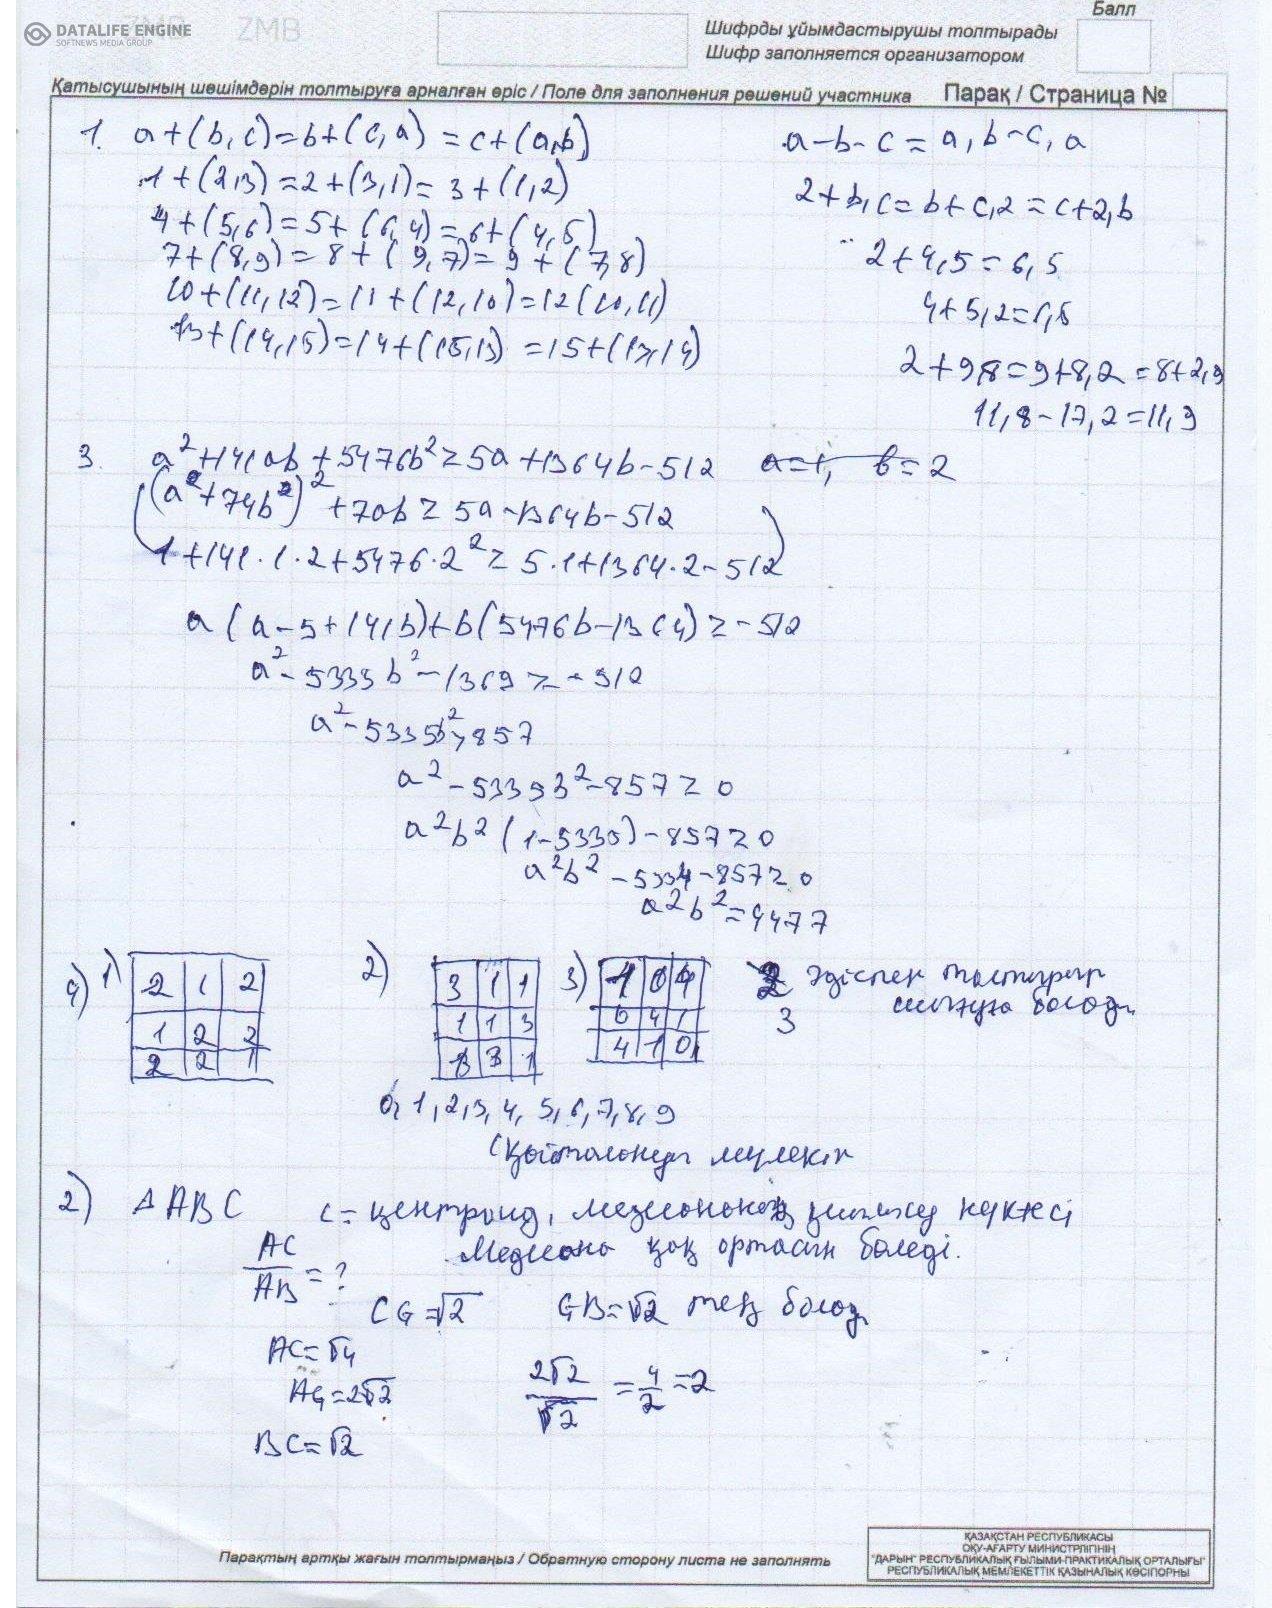 DATALIFE ENGINE
SOFTNEWS MEDIA GROUP
ZMB
ZMB
Балл
Шифрды ұйымдастырушы толтырады
Шифр заполняется организатором
Қатысушының шешімдерін толтыруға арналған өріс / Поле для заполнения решений участника
Парақ / Страница №
1. a+(b,c)=b+(c,a)=c+(a,b)
1+(2,3)=2+(3,1)=3+(1,2)
4+(5,6)=5+(6,4)=6+(4,5)
7+(8,9)=8+(9,7)=9+(7,8)
10+(11,12)=11+(12,10)=12(10,11)
13+(14,15)=14+(15,13)=15+(13,14)
a-b-c=a,b-c,a
2+b,c=b+c,2=c+2,b
2+4,5=6,5
4+5,2=
2+9,8=9+8,2=8+2,9
11,8-17,2=11,9
3. a²+141ab+5476b²≥5a+1364b-512 a=1, b=2
(a²+74b²)²+70b≥5a-1364b-512
1+141·1·2+5476·2²≥5·1+1364·2-512
a(a-5+141b)+b(5476b-1364)≥-512
a²-5335b²-1369≥-512
a²-5335b²≥857
a²-5335b²-857≥0
a²b²(1-5335)-857≥0
a²b²-5334-857≥0
a²b²=4477
4) 1)
2 1 2
1 2 2
2 2 1
2)
3 1 1
1 1 3
1 3 1
3)
1 0 4
0 4 1
4 1 0
3 әдіспен толтырып шығуға болады
0,1,2,3,4,5,6,7,8,9
2) ΔABC c= центроид, медиананың қиылысу нүктесі
Медиана қақ ортасын бөледі.
AC/AB=?
CG=√2 GB=√2 тең болад
AC=√4
AG=2√2
2√2/√2=4/2=2
BC=√2
Парақтың артқы жағын толтырмаңыз / Обратную сторону листа не заполнять
ҚАЗАҚСТАН РЕСПУБЛИКАСЫ
ОҚУ-АҒАРТУ МИНИСТРЛІГІНІҢ
"ДАРЫН" РЕСПУБЛИКАЛЫҚ ҒЫЛЫМИ-ПРАКТИКАЛЫҚ ОРТАЛЫҒЫ"
РЕСПУБЛИКАЛЫҚ МЕМЛЕКЕТТІК ҚАЗЫНАЛЫҚ КӘСІПОРНЫ